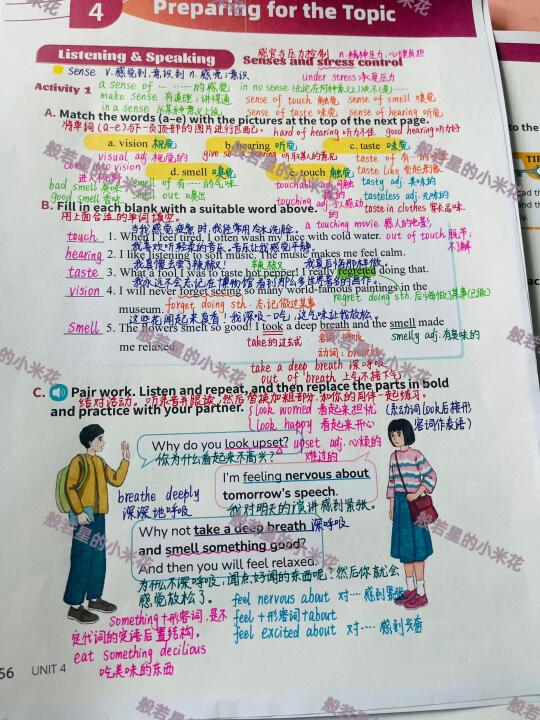 4 Preparing for the Topic
Listening & Speaking Senses and stress control 感官与压力控制 n.精神压力,心理负担
sense v.感觉到,意识到 n.感觉;意识 under stress:承受压力
Activity 1 a sense of ……的感觉 in no sense(无论在何种意义上)决不是……
make sense 有道理;讲得通 sense of touch 触觉 sense of smell 嗅觉
in a sense 从某种意义上说 sense of taste 味觉 sense of hearing 听觉
A. Match the words (a–e) with the pictures at the top of the next page.
将单词(a-e)与下一页顶部的图片进行匹配。 hard of hearing 听力不佳 good hearing 听力好
a. vision 视觉 b. hearing 听觉 c. taste 味觉
visual adj.视觉的 give sb a hearing 听取某人的意见 taste of 有…的味道
come into vision d. smell 嗅觉 e. touch 触觉 taste like 尝起来像
进入视野 smell of 有……的气味 touchable adj.可触摸的 tasty adj.美味的
bad smell 臭味 smell out 嗅出 touching adj.令人感动的 tasteless adj.无味的
good smell 香味 taste in clothes 穿衣品味
B. Fill in each blank with a suitable word above. a touching movie 感人的电影
用上面合适的单词填空。 当我感觉疲惫时,我经常用冷水洗脸。 out of touch 脱节,不了解
touch 1. When I feel tired, I often wash my face with cold water.
我喜欢听轻柔的音乐。音乐让我感觉平静
hearing 2. I like listening to soft music. The music makes me feel calm.
我真傻去尝了辣椒! 辣椒 我真后悔那样做。
taste 3. What a fool I was to taste hot pepper! I really regretted doing that.
我永远不会忘记在博物馆看到那么多世界著名的画作。
vision 4. I will never forget seeing so many world-famous paintings in the
museum. forget doing sth.忘记做过某事 regret doing sth.后悔做了某事(已做)
这些花闻起来真香!我深吸一口气,这气味让我放松。
smell 5. The flowers smelt so good! I took a deep breath and the smell made
me relaxed. take的过去式 名词:呼吸 smelly adj.有臭味的
动词:breathe
take a deep breath 深呼吸
out of breath 上气不接下气
C. Pair work. Listen and repeat, and then replace the parts in bold
结对活动。听录音并跟读,然后替换加粗部分,和你的同伴一起练习。
and practice with your partner. look worried 看起来担忧 (系动词look后接形容词作表语)
look happy 看起来开心
Why do you look upset? upset adj.心烦的
你为什么看起来不高兴? 难过的
I'm feeling nervous about
tomorrow's speech.
我对明天的演讲感到紧张。
breathe deeply
深深地呼吸
Why not take a deep breath 深呼吸
and smell something good?
And then you will feel relaxed.
为什么不深呼吸,闻点好闻的东西呢?然后你就会
感觉放松了。 feel nervous about 对…感到紧张
something+形容词,是不 feel+形容词+about
定代词的定语后置结构。 feel excited about 对…感到兴奋
eat something delicious
吃美味的东西
56 UNIT 4
般若星的小米花